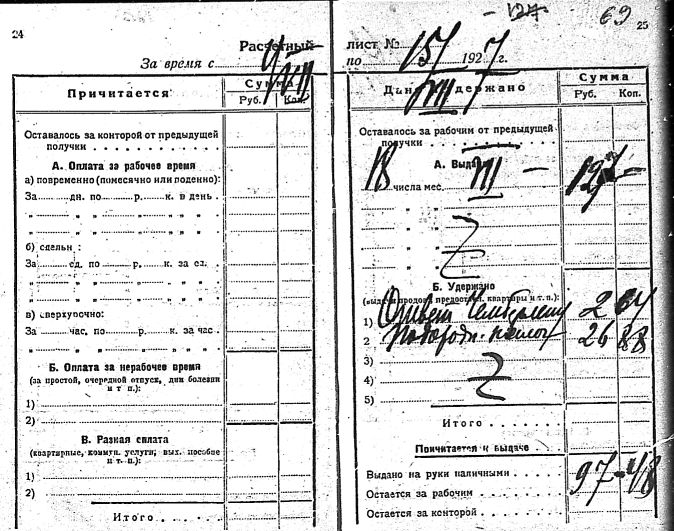 24
Расчетный
За время с
Причитается
Сумма
Руб. Коп.
Оставалось за конторой от предыдущей
получки
А. Оплата за рабочее время
а) повременно (помесячно или поденно):
За дн. по р. к. в день
„ „ „ „ „ „ „
„ „ „ „ „ „ „
б) сдельн :
За ед. по р. к. за ед.
„ „ „ „ „ „ „
„ „ „ „ „ „ „
в) сверхурочно:
За час. по р. к. за час
„ „ „ „ „ „ „
Б. Оплата за нерабочее время
(за простой, очередной отпуск, дни болезни
и т п.):
1)
2)
В. Разная оплата
(квартирные, коммун. услуги, вых. пособие
и т. п.):
1)
2)
Итого
- 127 69
25
лист №
по 15/ 1927 г.
VIII
Дано и удержано
Сумма
Руб. Коп.
Оставалось за рабочим от предыдущей
получки
А. Выдано
18 числа мес. VIII - 127 -
„ „
„ „
„ „
„ „
Б. Удержано
(выдачи продов., предоставл. квартиры и т. п.):
1) 2 64
2 26 88
3)
4)
5)
Итого
Причитается к выдаче
Выдано на руки наличными 97-48
Остается за рабочим
Остается за конторой